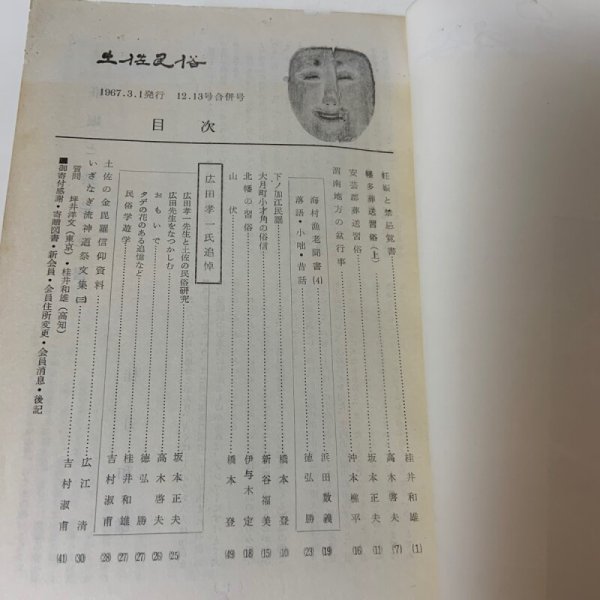 土佐民俗
1967.3.1発行 12.13号合併号
目次
妊娠と禁忌覚書……桂井和雄 (1)
幡多葬送習俗(上)……高木啓夫 (7)
安芸郡葬送習俗……坂本正夫 (11)
渭南地方の盆行事……沖本樵平 (16)
海村漁老聞書(4)……浜田数義 (19)
落語・小咄・昔話……徳弘勝 (23)
下ノ加江民謡……橋本登 (10)
大月町小才角の俗信……新谷福美 (15)
北幡の習俗……伊与木定 (18)
山伏……橋本登 (49)
広田孝一氏追悼
広田孝一先生と土佐の民俗研究……坂本正夫 (25)
広田先生をなつかしむ……高木啓夫 (26)
おもいで……徳弘勝 (27)
タデの花のある追憶など……桂井和雄 (27)
民俗学遊学……吉村淑甫 (28)
土佐の金毘羅信仰資料……広江清 (30)
いざなぎ流神道祭文集(三)……吉村淑甫 (41)
質問 坪井洋文(東京)・桂井和雄(高知)
■御寄付感謝・寄贈図書・新会員・会員住所変更・会員消息・後記